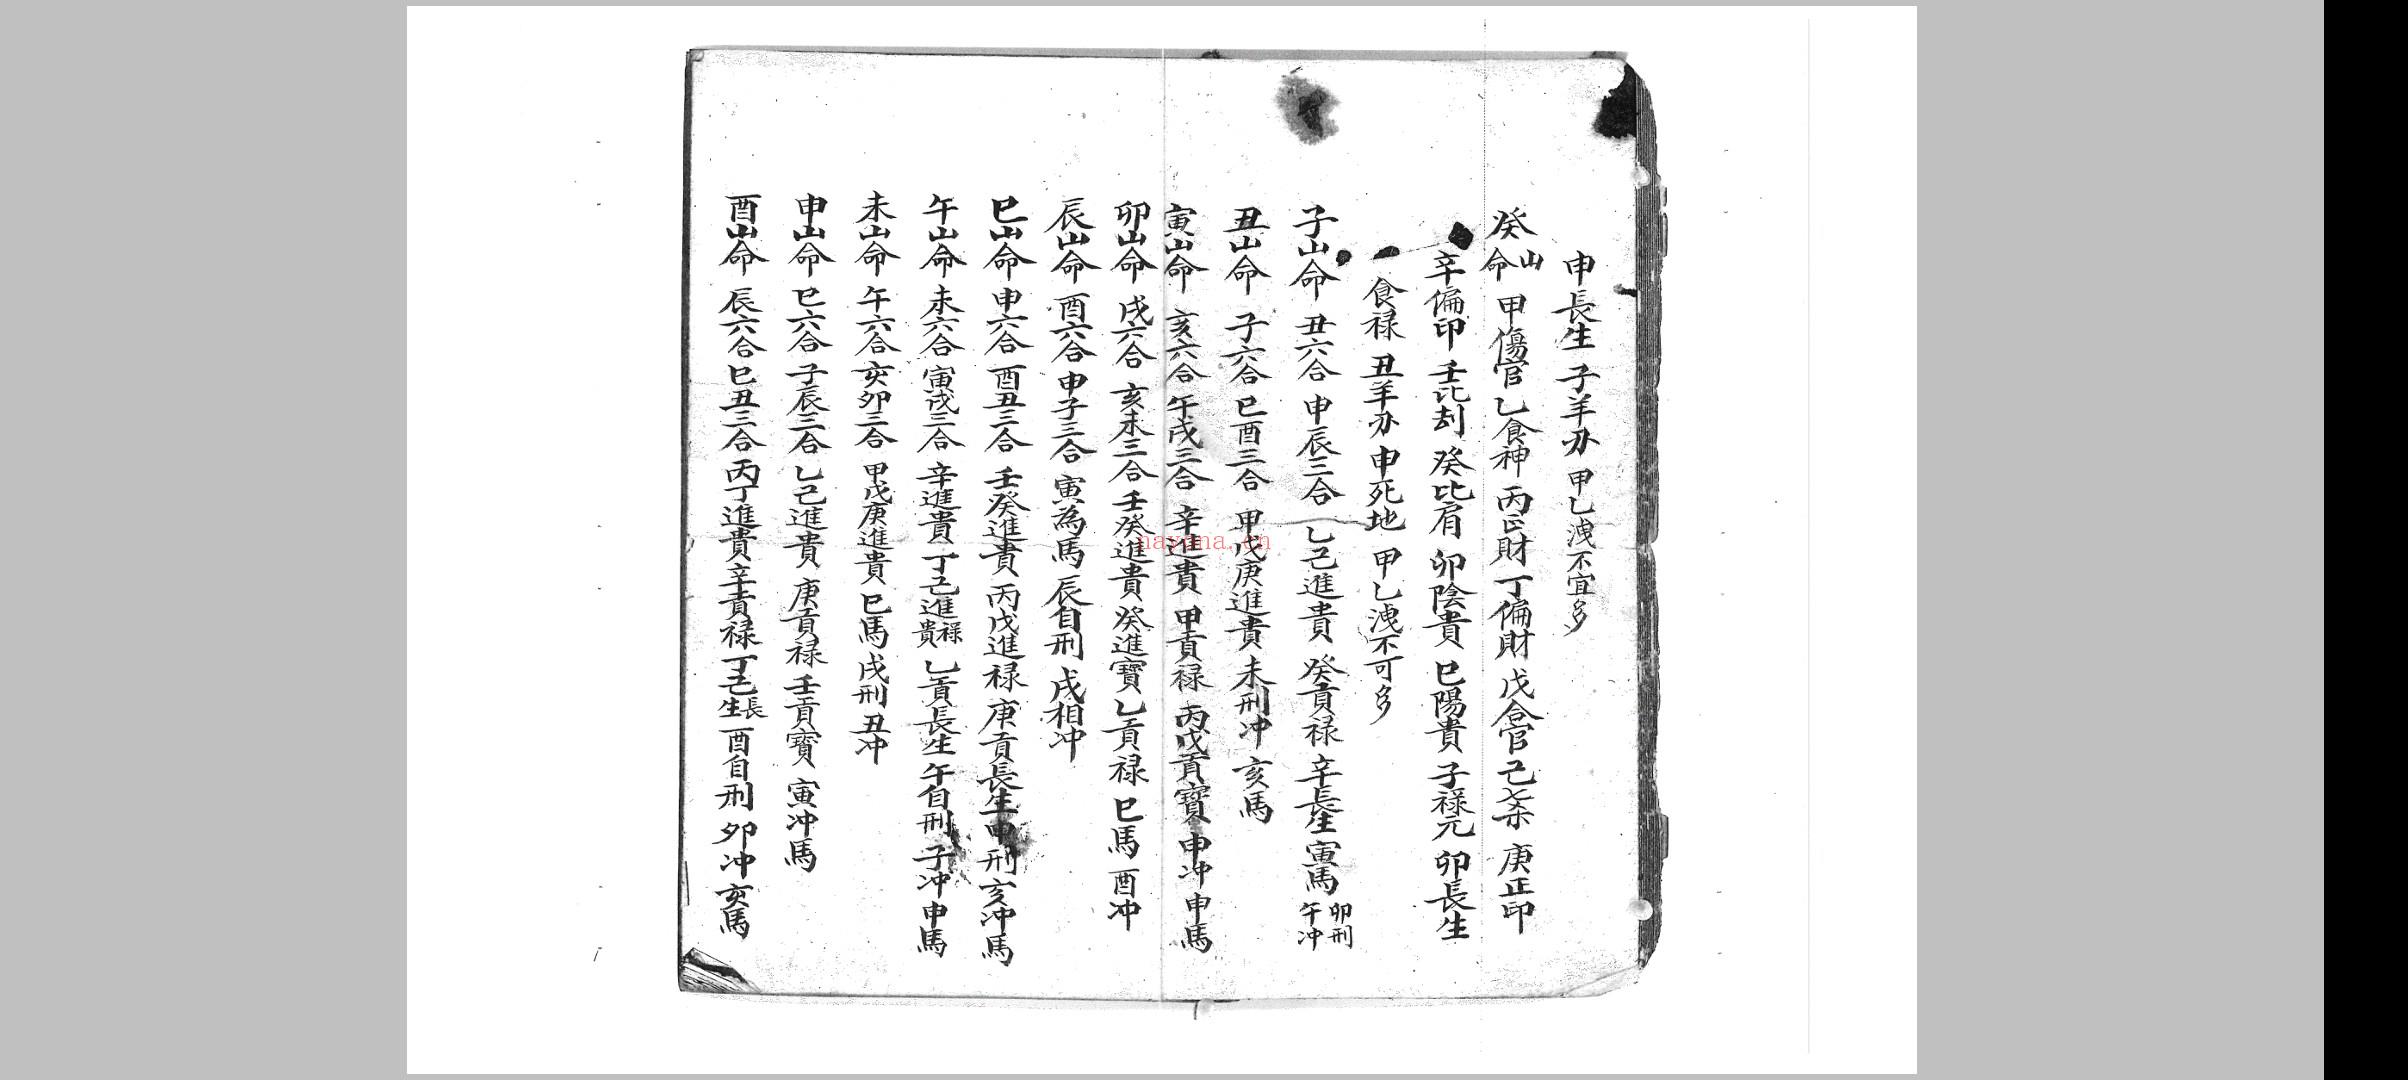 申長生 子羊刃 甲乙洩不宜多
癸山命 甲傷官 乙食神 丙正財 丁偏財 戊合官 己七杀 庚正印
辛偏印 壬比刦 癸比肩 卯陰貴 巳陽貴 子禄元 卯長生
食禄 丑羊刃 申死地 甲乙洩不可多
子山命 丑六合 申辰三合 乙己進貴 癸貢禄 辛長生 寅馬 卯刑 午冲
丑山命 子六合 巳酉三合 甲戊庚進貴 未刑冲 亥馬
寅山命 亥六合 午戌三合 辛進貴 甲貢禄 丙戊貢寳 申冲 申馬
卯山命 戌六合 亥未三合 壬癸進貴 癸進寳 乙貢禄 巳馬 酉冲
辰山命 酉六合 申子三合 寅為馬 辰自刑 戌相冲
巳山命 申六合 酉丑三合 壬癸進貴 丙戊進禄 庚貢長生 申刑 亥冲馬
午山命 未六合 寅戌三合 辛進貴 丁己進禄貴 乙貢長生 午自刑 子冲 申馬
未山命 午六合 亥卯三合 甲戊庚進貴 巳馬 戌刑 丑冲
申山命 巳六合 子辰三合 乙己進貴 庚貢禄 壬貢寳 寅冲馬
酉山命 辰六合 巳丑三合 丙丁進貴 辛貢禄 丁己長生 酉自刑 卯冲 亥馬
nayona.cn